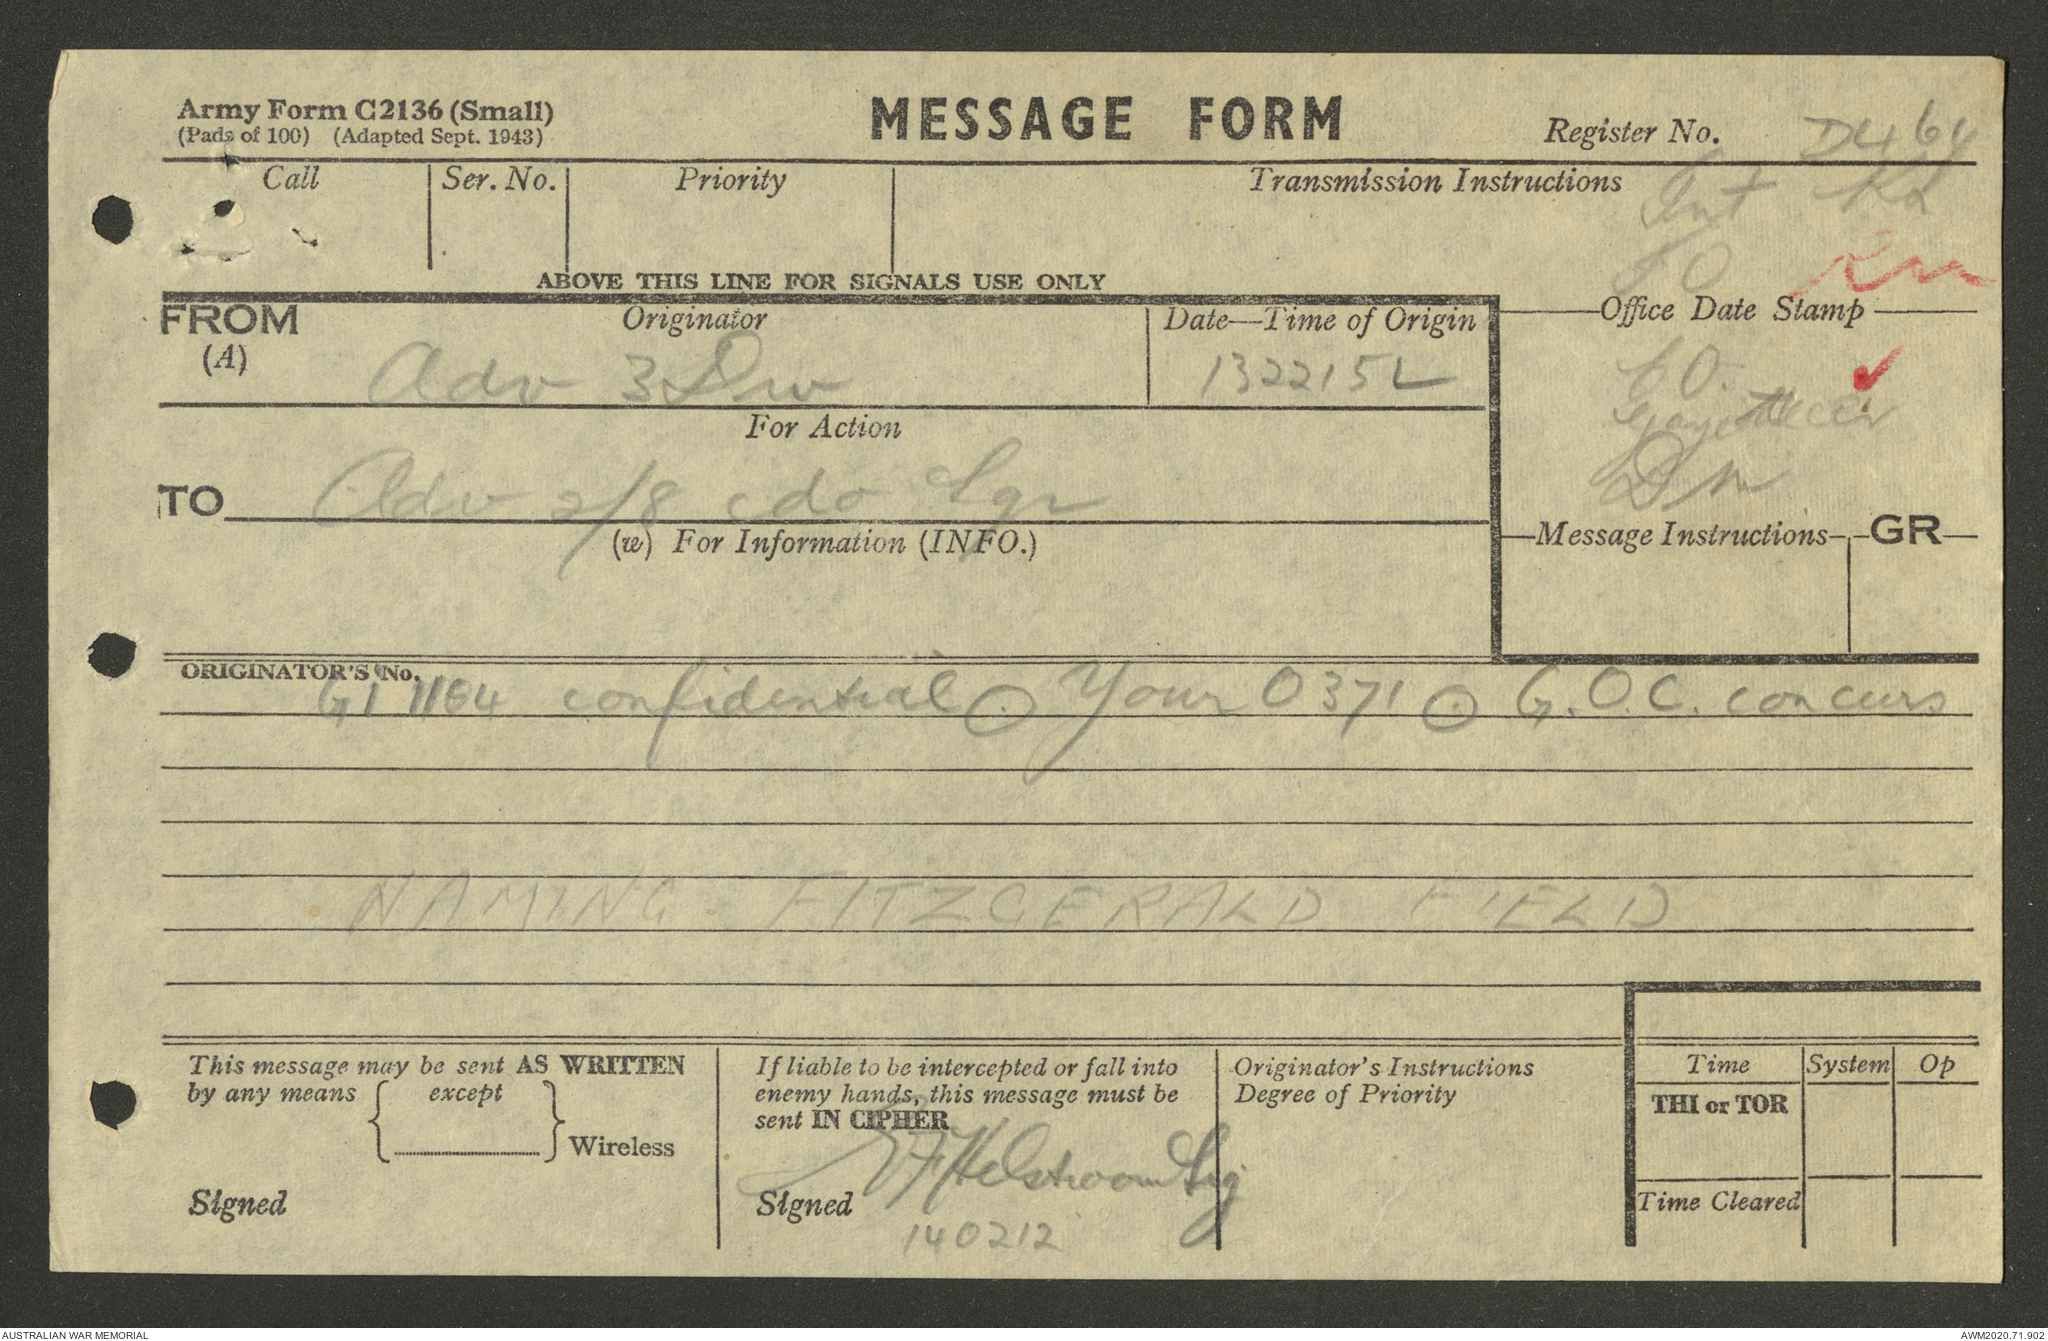 Army Form C2136 (Small)
(Pads of 100) (Adapted Sept. 1943)
MESSAGE FORM
Register No. D464
Call
Ser. No.
Priority
Transmission Instructions
Int
IO
ABOVE THIS LINE FOR SIGNALS USE ONLY
FROM
(A)
Originator
Adv 3 Div
Date—Time of Origin
132215L
Office Date Stamp
CO.
For Action
TO
Adv 2/8 cdo Sqn
(w) For Information (INFO.)
Message Instructions
GR
ORIGINATOR'S No.
G1 1164 confidential ⊙ Your O371 ⊙ G.O.C. concurs
NAMING FITZGERALD FIELD
This message may be sent AS WRITTEN
by any means
except
Wireless
Signed
If liable to be intercepted or fall into
enemy hands, this message must be
sent IN CIPHER
Signed
Helstroom Sig
140212
Originator's Instructions
Degree of Priority
Time
System
Op
THI or TOR
Time Cleared
AUSTRALIAN WAR MEMORIAL
AWM2020.71.902